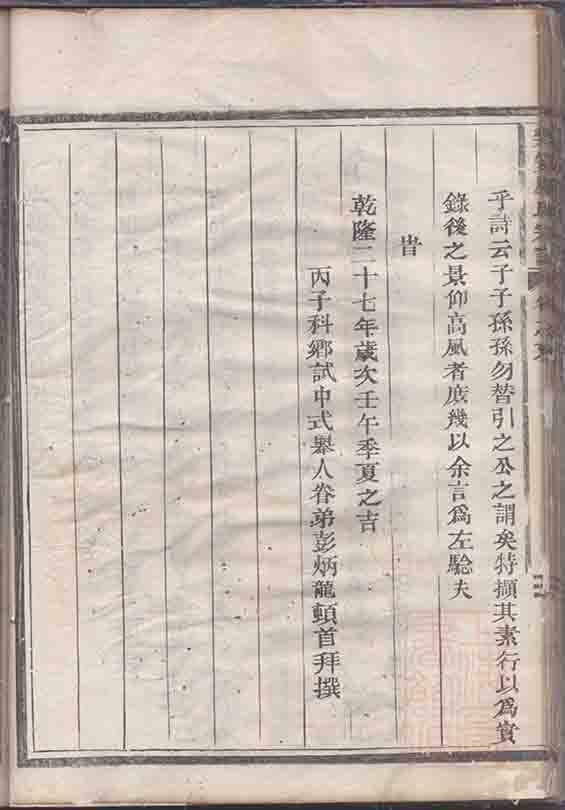 乎詩云子子孫孫勿替引之公之謂矣特擷其素行以爲實
錄後之景仰高風者庶幾以余言爲左騐夫
旹
乾隆二十七年歲次壬午季夏之吉
丙子科鄉試中式舉人眷弟彭炳龍頓首拜撰